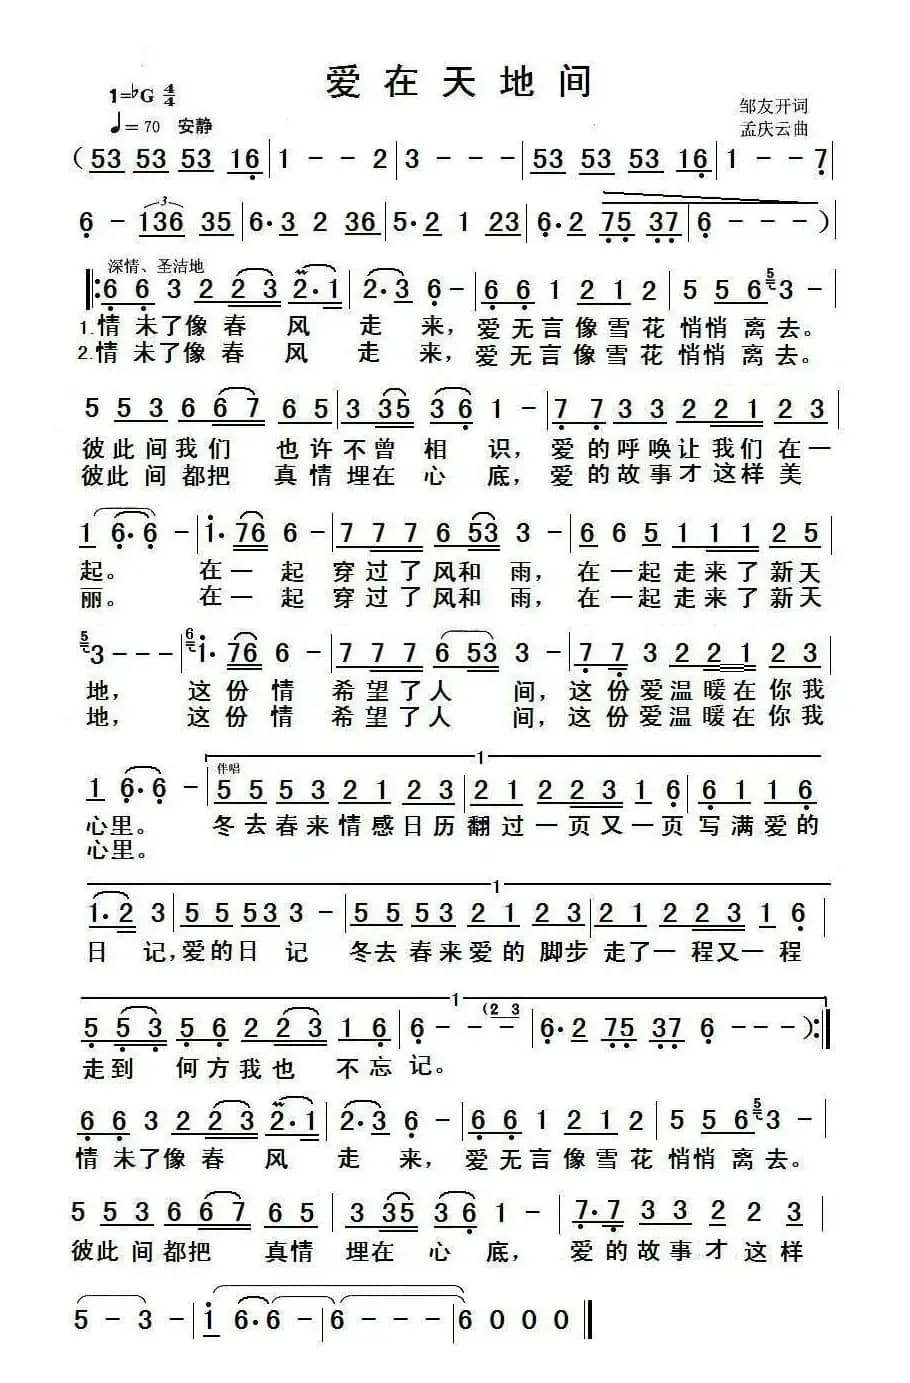 爱在天地间
1=♭G 4/4
♩=70 安静
邹友开词
孟庆云曲
(53 53 53 16|1 - - 2|3 - - -|53 53 53 16|1 - - 7|
6 - 136 35|6·3 2 36|5·2 1 23|6·2 75 37|6 - - -)|
深情、圣洁地
‖:6 6 3 2 2 3 2·1|2·3 6 -|6 6 1 2 1 2|5 5 6 5 3 -|
1.情 未了像 春 风 走 来，爱无言像雪花悄悄离去。
2.情 未了像 春 风 走 来，爱无言像雪花悄悄离去。
5 5 3 6 6 7 6 5|3 35 3 6 1 -|7 7 3 3 2 2 1 2 3|
彼此间我们 也许不曾 相 识，爱的呼唤让我们在一
彼此间都把 真情埋在 心 底，爱的故事才这样美
1 6·6 -|1·76 6 -|7 7 7 6 53 3 -|6 6 5 1 1 1 2 5|
起。 在一 起 穿过了风和 雨，在一起走来了新天
丽。 在一 起 穿过了风和 雨，在一起走来了新天
5 3 - - -|6 1·76 6 -|7 7 7 6 53 3 -|7 7 3 2 2 1 2 3|
地， 这份情 希望了人 间，这份爱温暖在你我
地， 这份情 希望了人 间，这份爱温暖在你我
1
伴唱
1 6·6 -|5 5 5 3 2 1 2 3|2 1 2 2 3 1 6|6 1 1 6|
心里。 冬去春来情感日历翻过一页又一页写满爱的
心里。
1
1·2 3|5 5 53 3 -|5 5 53 2 1 2 3|2 1 2 2 3 1 6|
日 记，爱的日 记 冬去春来爱的脚步走了一程又一程
1
5 5 3 5 6 2 2 3 1 6|6 - - (2 3 -|6·2 75 37 6 - - -):‖
走到 何方我也 不忘记。
6 6 3 2 2 3 2·1|2·3 6 -|6 6 1 2 1 2|5 5 6 5 3 -|
情 未了像 春 风 走 来，爱无言像雪花悄悄离去。
5 5 3 6 6 7 6 5|3 35 3 6 1 -|7·7 3 3 2 2 3|
彼此间都把 真情 埋在 心 底，爱的故事才这样
5 - 3 -|1 6·6 -|- - -|6 0 0 0‖